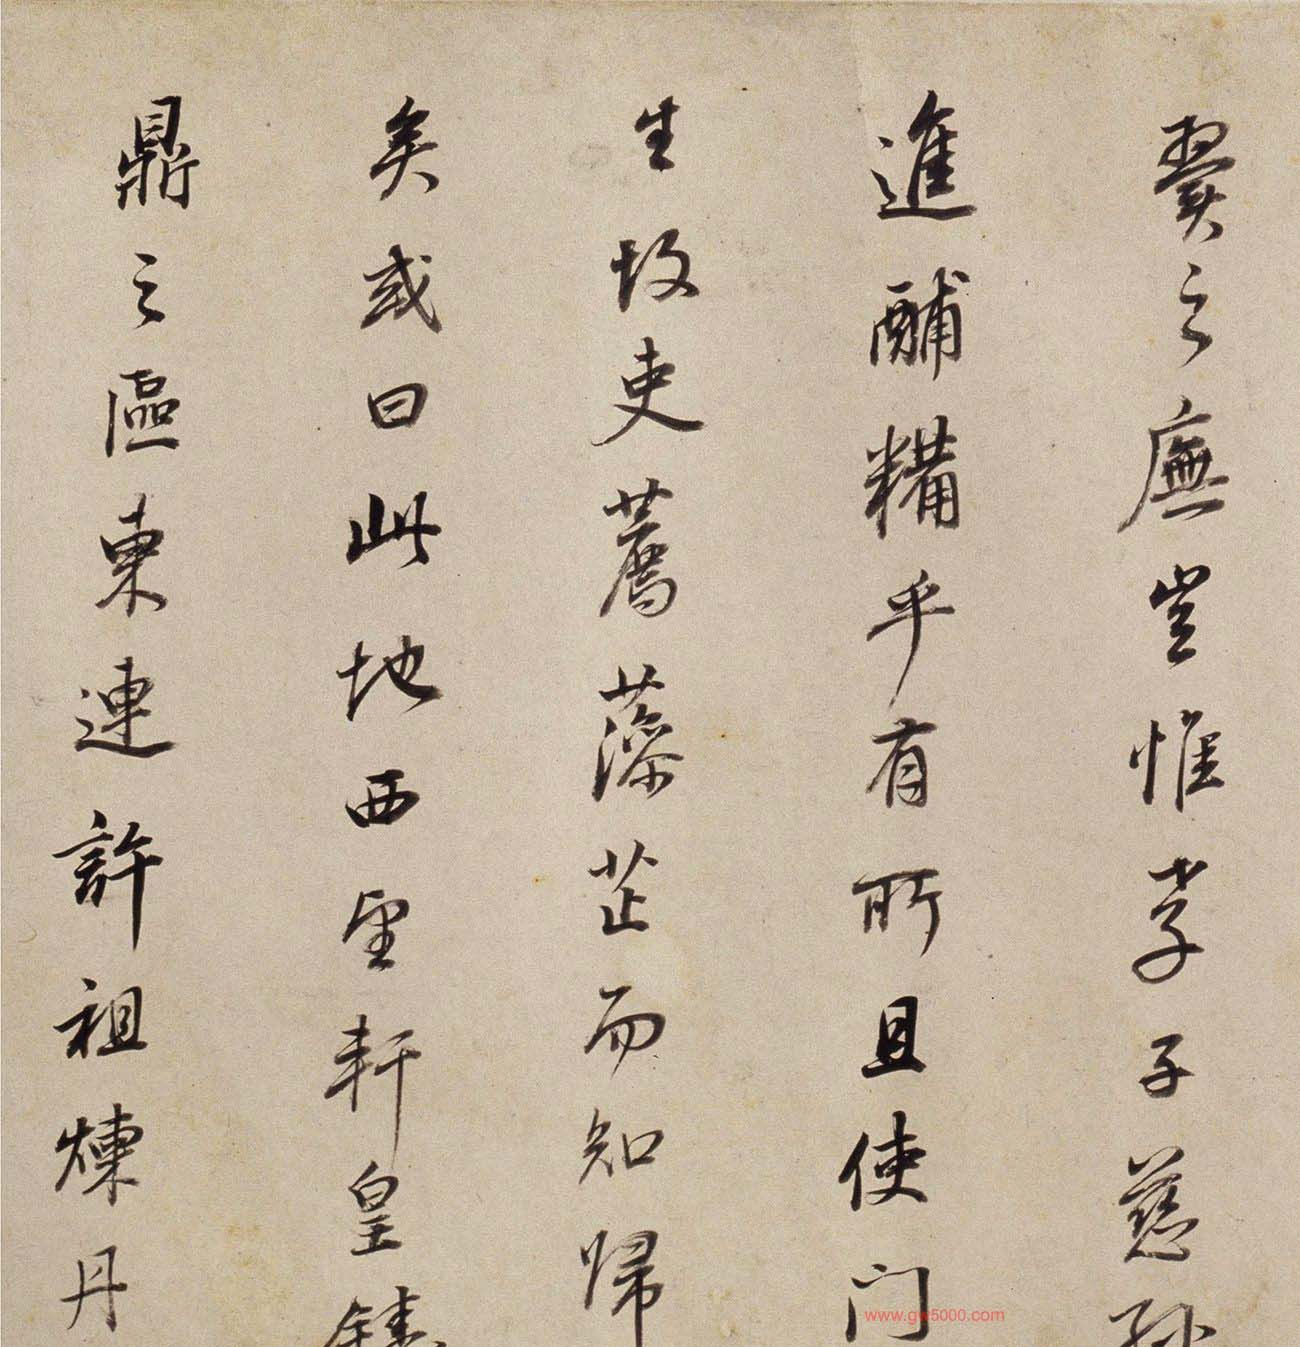 翼之廡豈惟孝子慈孫
進酺糒乎有所且使門
生故吏薦藻芷而知歸
矣或曰此地西望軒皇鑄
鼎之區東連許祖煉丹
www.gw5000.com